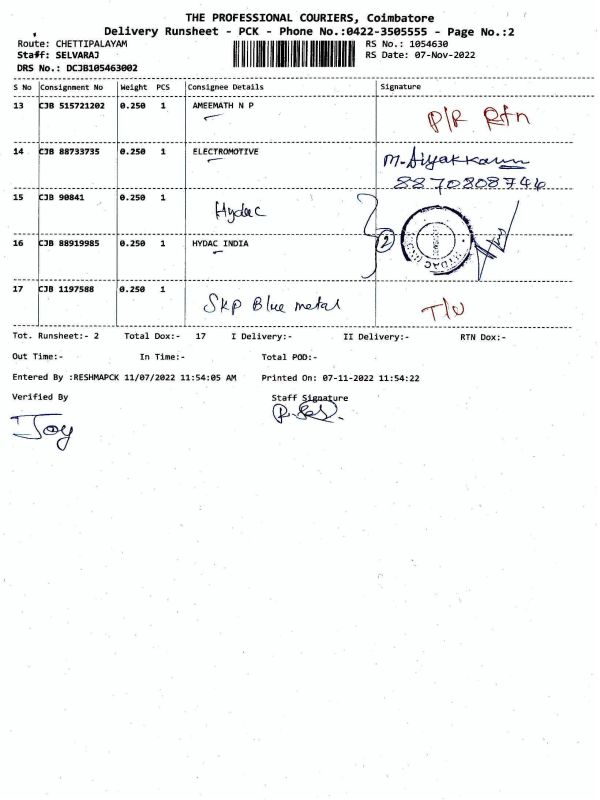 THE PROFESSIONAL COURIERS, Coimbatore
Delivery Runsheet - PCK - Phone No.:0422-3505555 - Page No.:2
Route: CHETTIPALAYAM RS No.: 1054630
Staff: SELVARAJ RS Date: 07-Nov-2022
DRS No.: DCJB105463002
S No Consignment No Weight PCS Consignee Details Signature
13 CJB 515721202 0.250 1 AMEEMATH N P
P/R Rtn
14 CJB 88733735 0.250 1 ELECTROMOTIVE
M. Aiyakkannu
8870808746
15 CJB 90841 0.250 1 Hydac
16 CJB 88919985 0.250 1 HYDAC INDIA 2
17 CJB 1197588 0.250 1
Skp Blue metal T/U
Tot. Runsheet:- 2 Total Dox:- 17 I Delivery:- II Delivery:- RTN Dox:-
Out Time:- In Time:- Total POD:-
Entered By :RESHMAPCK 11/07/2022 11:54:05 AM Printed On: 07-11-2022 11:54:22
Verified By Staff Signature
Joy